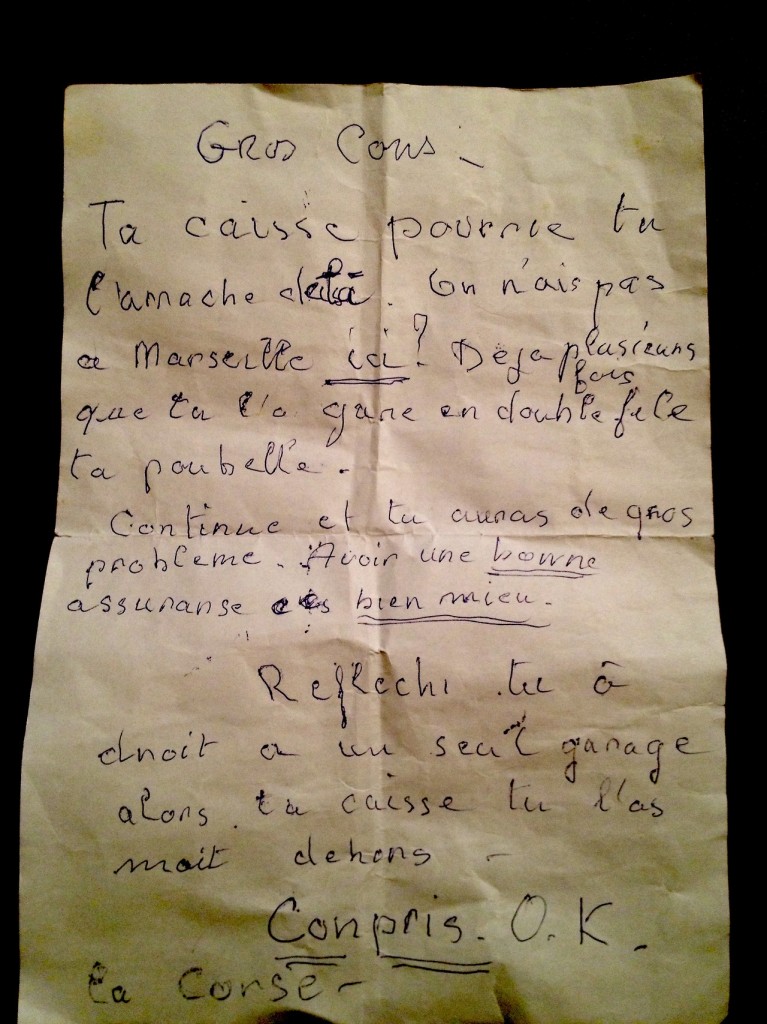 Gros Cons -
Ta caisse pourrie tu
l'arrache de là. On n'ais pas
a Marseille ici! Deja plusieurs
fois
que tu l'a gare en double file
ta poubelle.
Continue et tu auras de gros
probleme. Avoir une bonne
assuranse es bien mieu.
Reflechi tu à
droit a un seul garage
alors ta caisse tu l'as
mait dehors -
Conpris. O.K.
La Corse -